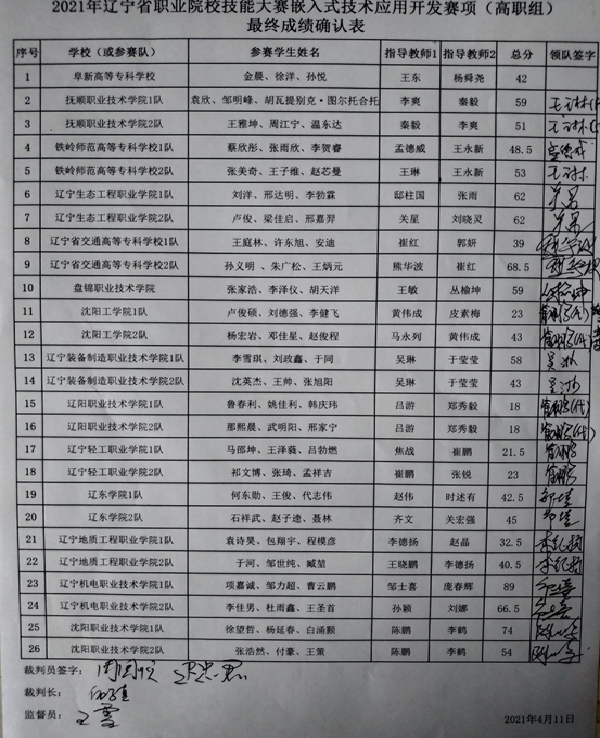 2021年辽宁省职业院校技能大赛嵌入式技术应用开发赛项（高职组）
最终成绩确认表
序号 学校（或参赛队） 参赛学生姓名 指导教师1 指导教师2 总分 领队签字
1 阜新高等专科学校 金晨、徐洋、孙悦 王东 杨舜尧 42
2 抚顺职业技术学院1队 袁欣、邹明峰、胡瓦提别克·图尔托合托 李爽 秦毅 59
3 抚顺职业技术学院2队 王雅坤、周江宁、温东达 秦毅 李爽 51
4 铁岭师范高等专科学校1队 蔡欣彤、张雨欣、李贺睿 孟德威 王永新 48.5
5 铁岭师范高等专科学校2队 张美奇、王子维、赵芯曼 王琳 王永新 53
6 辽宁生态工程职业学院1队 刘洋、邢达明、李勃霖 邸柱国 张雨 62
7 辽宁生态工程职业学院2队 卢俊、梁佳启、邢嘉羿 关星 刘晓灵 62
8 辽宁省交通高等专科学校1队 王庭林、许东旭、安迪 崔红 郭妍 39
9 辽宁省交通高等专科学校2队 孙义明、朱广松、王炳元 熊华波 崔红 68.5
10 盘锦职业技术学院 张家浩、李泽仪、胡天洋 王敏 丛榆坤 59
11 沈阳工学院1队 卢俊硕、刘德强、李健飞 黄伟成 皮素梅 23
12 沈阳工学院2队 杨宏岩、邓佳星、赵俊程 马永列 黄伟成 43
13 辽宁装备制造职业技术学院1队 李雪琪、刘政鑫、于同 吴琳 于莹莹 58
14 辽宁装备制造职业技术学院2队 沈英杰、王帅、张旭阳 吴琳 于莹莹 43
15 辽阳职业技术学院1队 鲁春利、姚佳利、韩庆玮 吕游 郑秀毅 18
16 辽阳职业技术学院2队 那熙晨、武明阳、邢家宁 吕游 郑秀毅 18
17 辽宁轻工职业学院1队 马邵坤、王泽薿、吕勃燃 焦战 崔鹏 21.5
18 辽宁轻工职业学院2队 祁文博、张琦、孟祥吉 崔鹏 张锐 23
19 辽东学院1队 何东勋、王俊、代志伟 赵伟 时述有 42.5
20 辽东学院2队 石祥武、赵子逵、聂林 齐文 关宏强 45
21 辽宁地质工程职业学院1队 袁诗昊、包翔宇、程模彦 李德扬 赵晶 32.5
22 辽宁地质工程职业学院2队 于河、邹世纯、臧堃 王晓鹏 李德扬 40.5
23 辽宁机电职业技术学院1队 项嘉诚、邹力超、曹云鹏 邹士喜 庞春辉 89
24 辽宁机电职业技术学院2队 李佳男、杜雨鑫、王圣首 孙颖 刘娜 66.5
25 沈阳职业技术学院1队 徐望哲、杨延春、白涌颢 陈鹏 李鹤 74
26 沈阳职业技术学院2队 张浩然、付豪、王策 陈鹏 李鹤 54
裁判员签字：
裁判长：
监督员：王雪
2021年4月11日